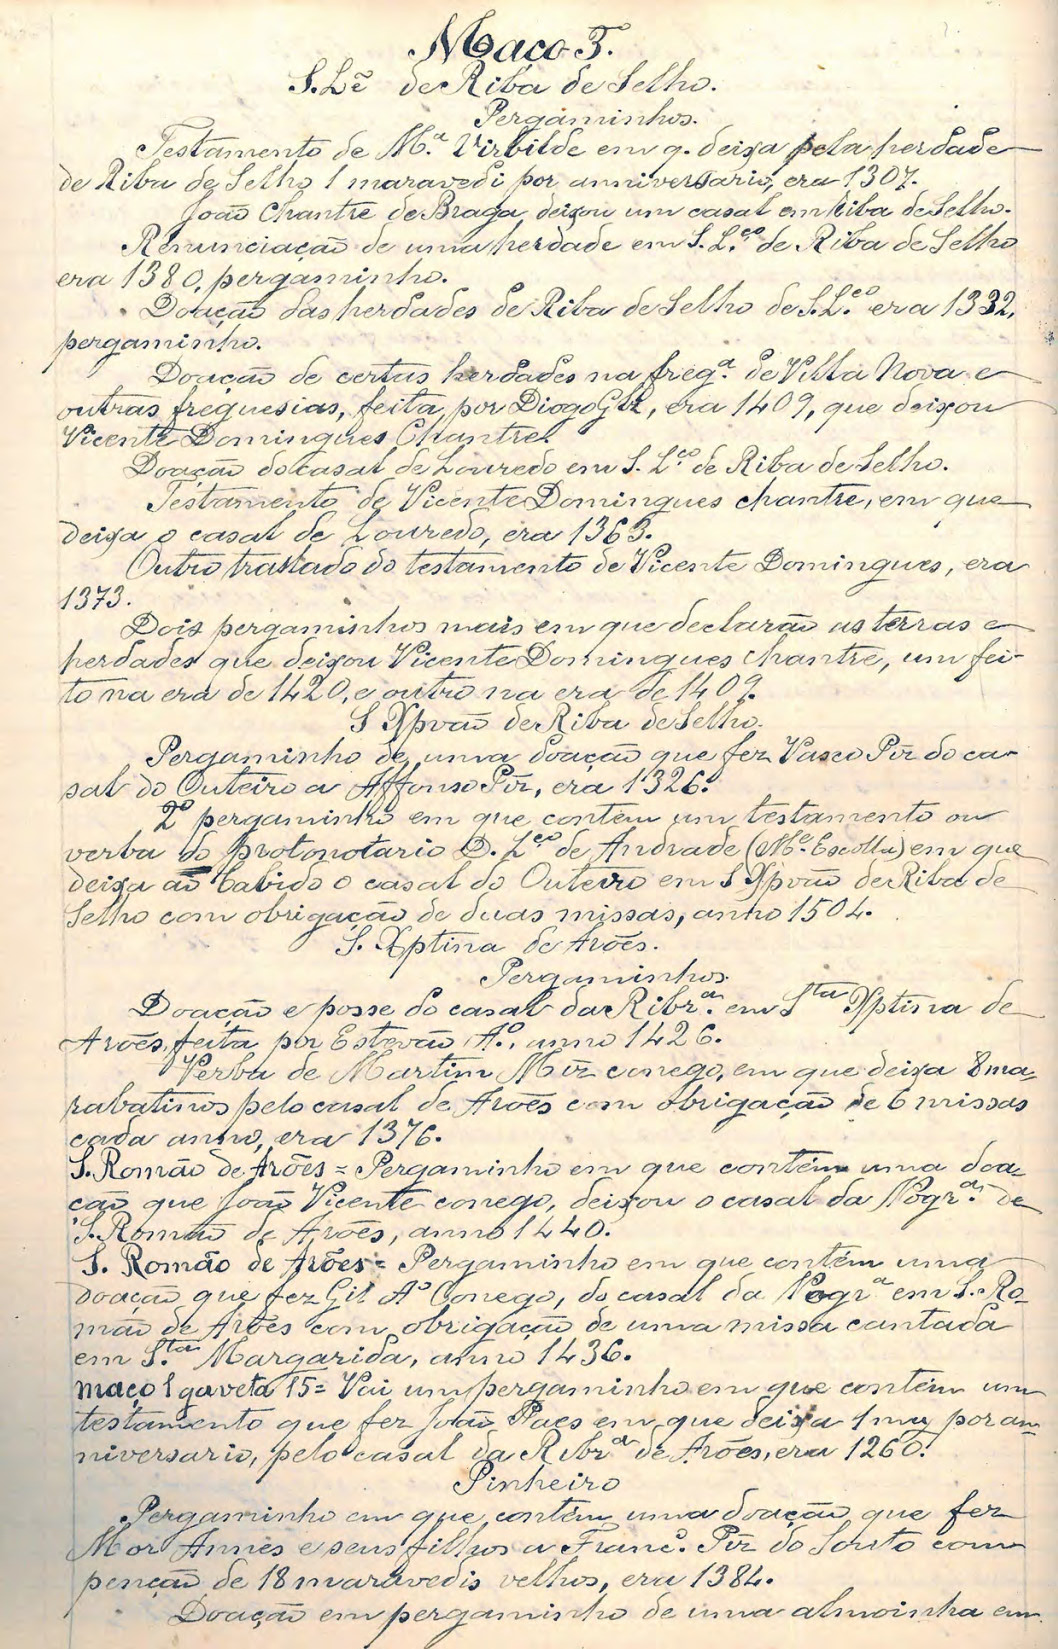 Maço 5.
S. Lẽ de Riba de Selho.
Pergaminhos.
Testamento de M.ª Virbilde em q. deixa pela herdade
de Riba de Selho 1 maravedi por anniversario, era 1307.
João Chantre de Braga deixou um casal em Riba de Selho.
Renunciação de uma herdade em S. L.ço de Riba de Selho
era 1380, pergaminho.
Doação das herdades de Riba de Selho de S. L.ço era 1332,
pergaminho.
Doação de certas herdades na freg.ª de Villa Nova e
outras freguesias, feita por Diogo Glz, era 1409, que deixou
Vicente Domingues Chantre.
Doação do casal de Louredo em S. L.ço de Riba de Selho.
Testamento de Vicente Domingues chantre, em que
deixa o casal de Louredo, era 1363.
Outro traslado do testamento de Vicente Domingues, era
1373.
Dois pergaminhos mais em que declarão as terras e
herdades que deixou Vicente Domingues chantre, um fei-
to na era de 1420, e outro na era de 1409.
S Xpvão de Riba de Selho.
Pergaminho de uma doação que fez Vasco Piz do ca-
sal do Outeiro a Affonso Piz, era 1326.
2º pergaminho em que contém um testamento ou
verba do protonotario D. L.ço de Andrade (M.e Escolla) em que
deixa ao Cabido o casal do Outeiro em S Xpvão de Riba de
Selho com obrigação de duas missas, anno 1504.
S. Xptina de Arões.
Pergaminhos.
Doação e posse do casal da Ribr.ª em S.ta Xptina de
Arões, feita por Estevão A.º, anno 1426.
Verba de Martim Miz conego, em que deixa 8 ma-
rabatinos pelo casal de Arões com obrigação de 6 missas
cada anno, era 1376.
S. Romão de Arões = Pergaminho em que contém uma doa-
ção que João Vicente conego, deixou o casal da Nogr.ª de
S. Romão de Arões, anno 1440.
S. Romão de Arões = Pergaminho em que contém uma
doação que fez Gil Aº Conego, do casal da Nogrª em S. Ro-
mão de Arões com obrigação de uma missa cantada
em S.ta Margarida, anno 1436.
maço 1 gaveta 15 = Vai um pergaminho em que contém um
testamento que fez João Paes em que deixa 1 por an-
niversario, pelo casal da Ribrª de Arões, era 1260.
Pinheiro
Pergaminho em que contém uma doação que fez
Mor Annes e seus filhos a Franc.º Piz do Souto com
penção de 18 maravedis velhos, era 1384.
Doação em pergaminho de uma almoinha em